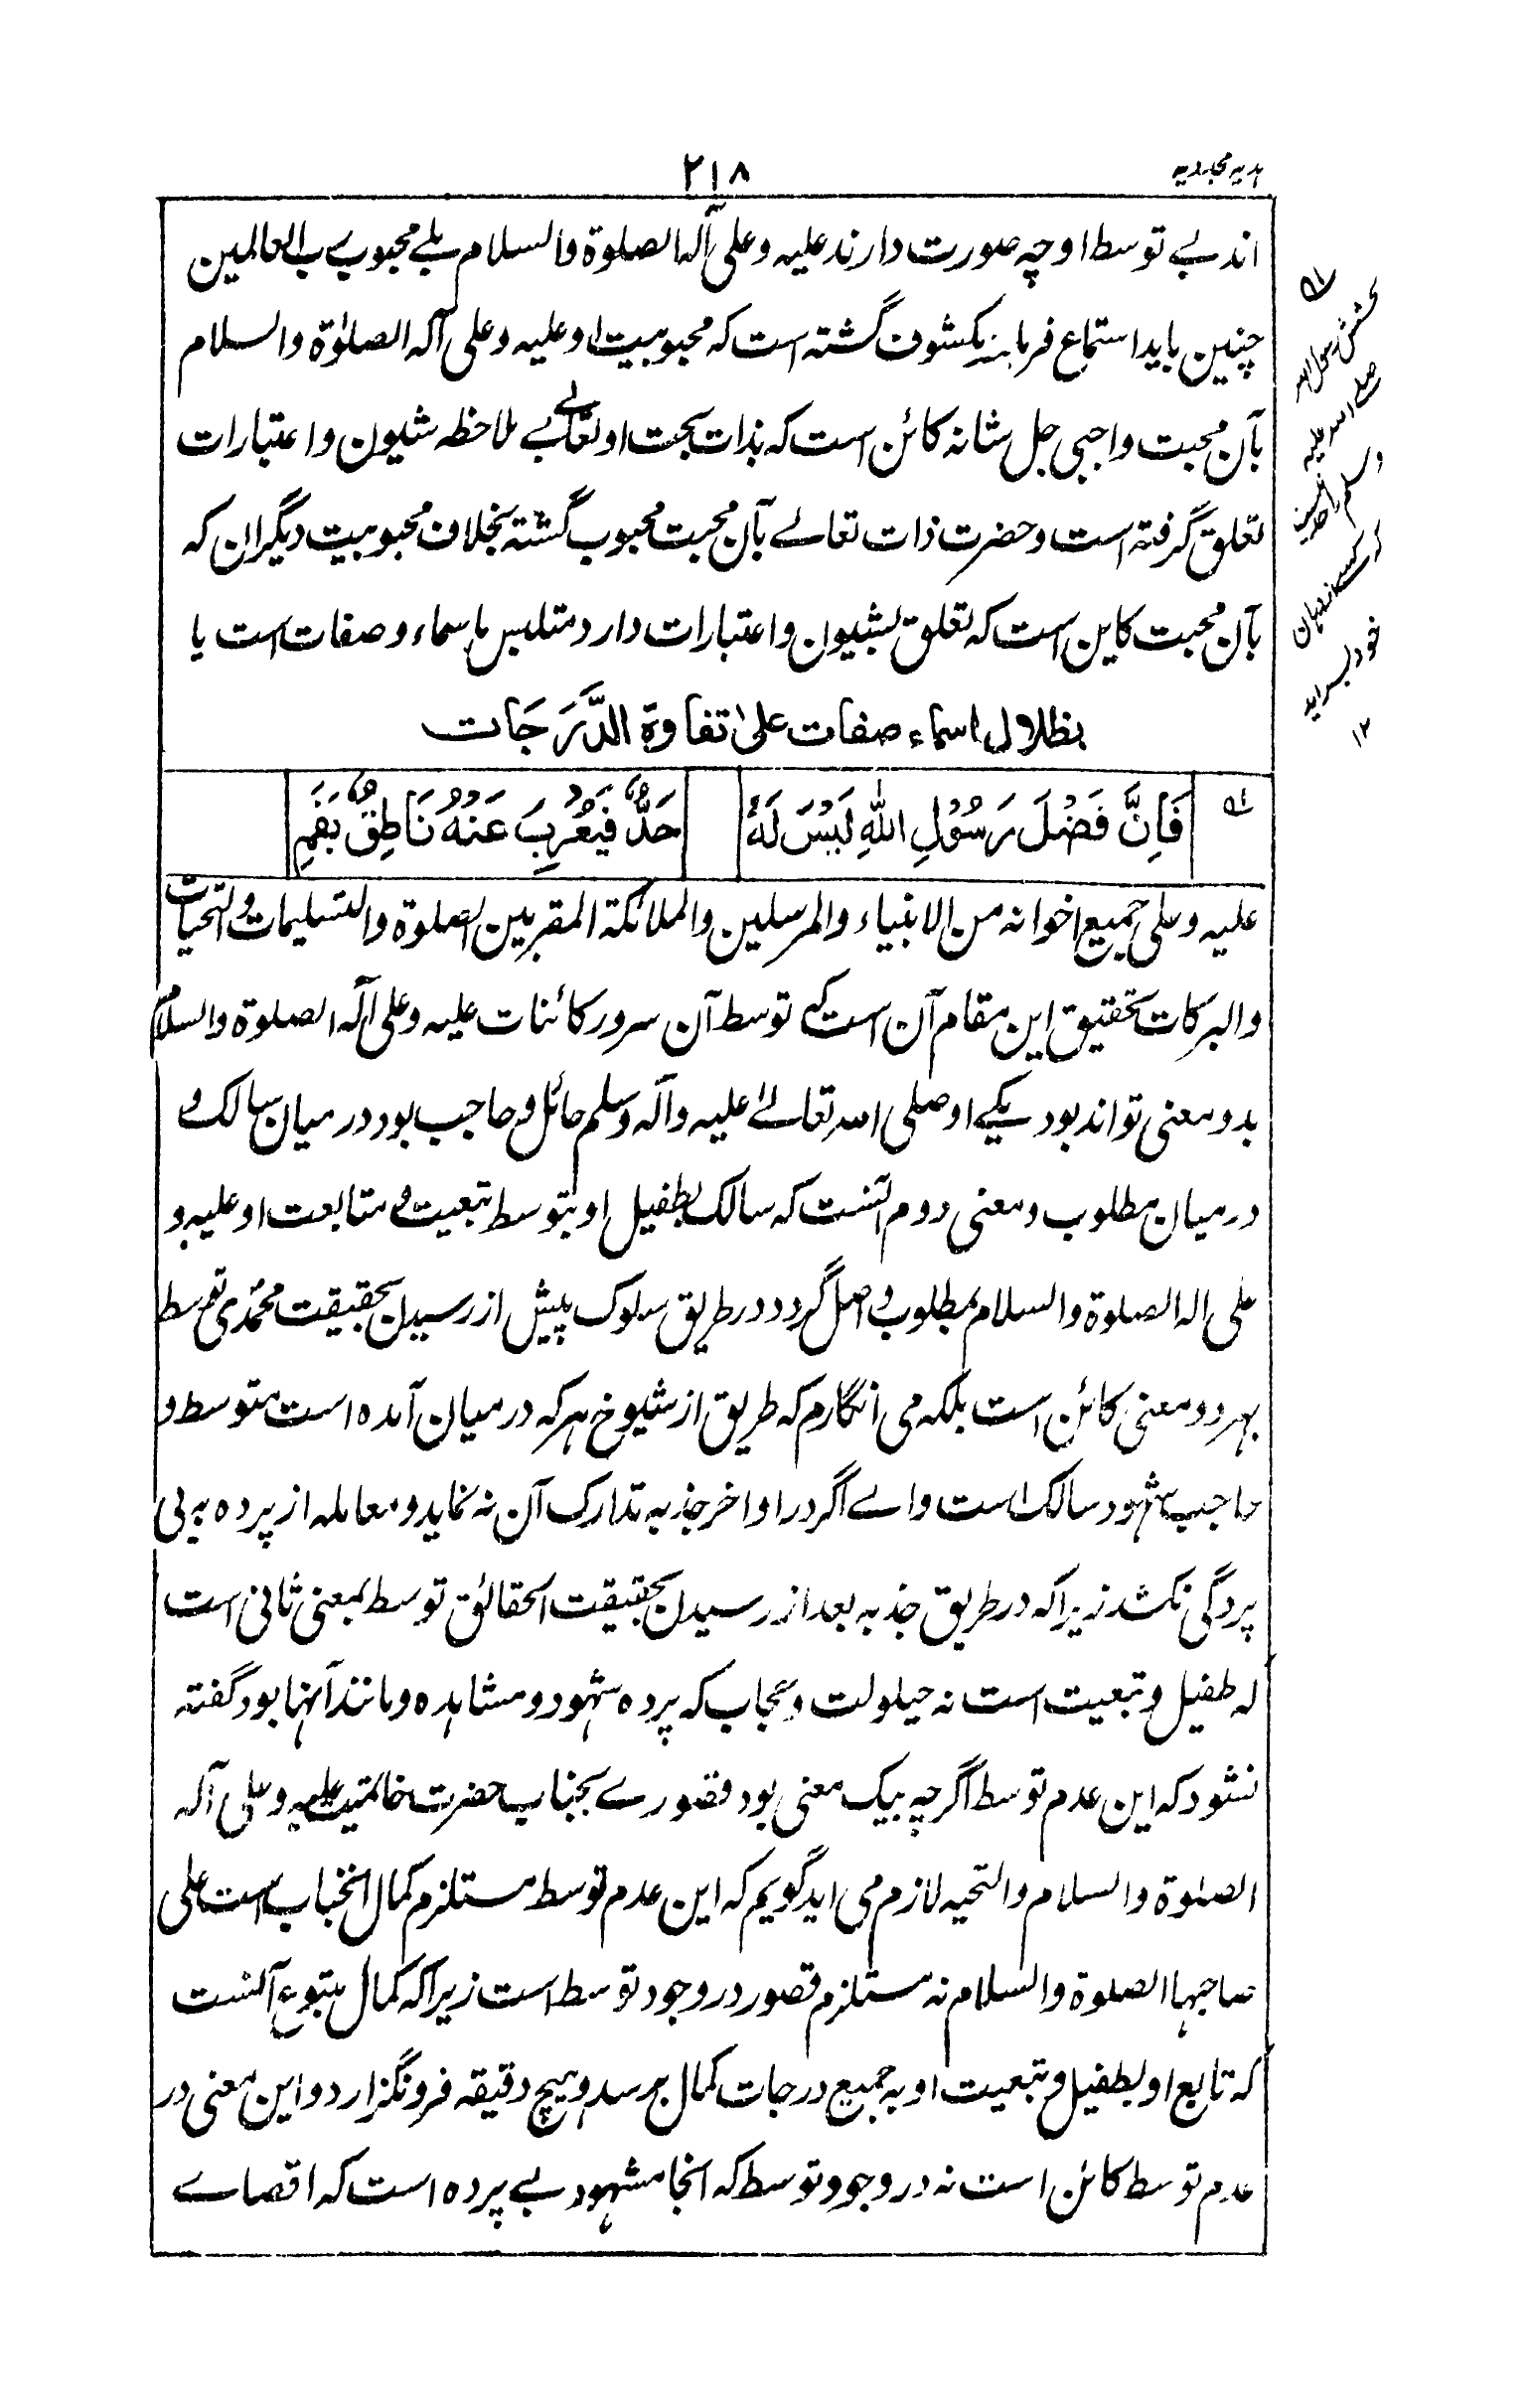 ہدیہ مجددیہ
۲۱۸
اند بے توسط او چہ صورت دارند علیہ و علی آلہ الصلوة والسلام بلے محبوب رب العالمین
چنین باید استماع فرمایند مکشوف گشتہ است کہ محبوبیت او علیہ و علی آلہ الصلوٰة والسلام
بآن محبت واجبی جل شانہ کائن است کہ بذات بحت او تعالےٰ بے ملاحظہ شیون و اعتبارات
تعلق گرفتہ است و حضرت ذات تعالےٰ بآن محبت محبوب گشتہ بخلاف محبوبیت دیگران کہ
بآن محبت کاین است کہ تعلق بشیون و اعتبارات دارد متلبس باسماء و صفات است یا
بظلال اسماء صفات علیٰ تفاوة الدَّرَجَات
فَاِنَّ فَضْلَ رَسُوْلِ اللّٰهِ لَيْسَ لَهٗ حَدٌّ فَيُعْرِبَ عَنْهُ نَاطِقٌ بِفَمِ
علیہ و علی جمیع اخوانہ من الانبیاء والمرسلین والملائکة المقربین الصلوة والتسلیمات والتحیات
والبرکات تحقیق این مقام آن است کہ توسط آن سرور کائنات علیہ و علی آلہ الصلوة والسلام
بدو معنی تواند بود یکے او صلی اللہ تعالےٰ علیہ وآلہ وسلم حائل و حاجب بود درمیان سالک و
درمیان مطلوب و معنی دوم آنست کہ سالک بطفیل او بتوسط تبعیت و متابعت او علیہ و
علی الہ الصلوة والسلام بمطلوب واصل گردد در طریق سلوک پیش از رسیدن بحقیقت محمدی توسط
بہر دو معنی کائن است بلکہ می انگارم کہ طریق از شیوخ ہر کہ درمیان آمدہ است متوسط و
حاجب شہود سالک است واے اگر در اواخر جذبہ تدارک آن نہ نماید و معاملہ از پردہ بہ بی
پردگی نکشد زیرا کہ در طریق جذبہ بعد از رسیدن بحقیقت الحقائق توسط بمعنی ثانی است
کہ طفیل و تبعیت است نہ حیلولت و حجاب کہ پردہ شہود و مشاہدہ و مانند آنہا بود گفتہ
نشود کہ این عدم توسط اگرچہ بیک معنی بود قصورے بجناب حضرت خاتمیت علیہ و علی آلہ
الصلوٰة والسلام والتحیہ لازم می اید گویم کہ این عدم توسط مستلزم کمال انجناب است علی
صاحبہا الصلوة والسلام نہ مستلزم قصور در وجود توسط است زیرا کہ کمال متبوع آنست
کہ تابع او بطفیل و تبعیت او بہ جمیع درجات کمال برسد و ہیچ دقیقہ فرو نگزارد و این معنی در
عدم توسط کائن است نہ در وجود توسط کہ انجا شہود بے پردہ است کہ اقصاے
رسول اللہ
صلے اللہ علیہ
وسلم
۱۲